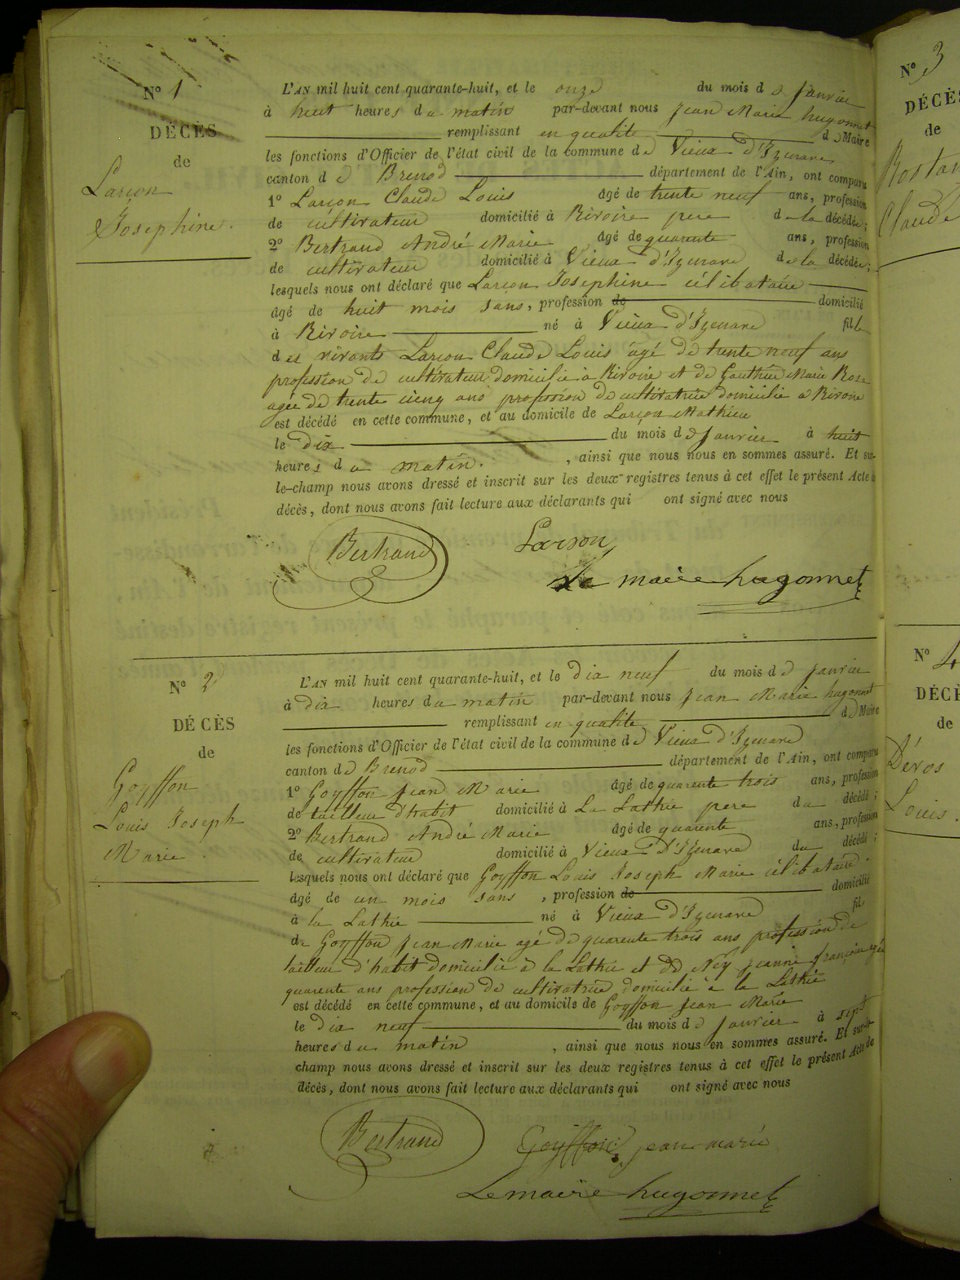 N° 1
DÉCÈS
de
Larçon
Josephine.
L'AN mil huit cent quarante-huit, et le onze du mois de Janvier
à huit heures du matin par-devant nous Jean Marie hugonnet
remplissant en qualité de Maire
les fonctions d'Officier de l'état civil de la commune de Vieux d'Izenave
canton de Brenod département de l'Ain, ont comparu
1° Larçon Claude Louis âgé de trente neuf ans, profession
de cultivateur domicilié à Rivoire pere de la décédée;
2° Bertrand André Marie âgé de quarente ans, profession
de cultivateur domicilié à Vieux d'Izenave de la décédée;
lesquels nous ont déclaré que Larçon Josephine célibataire
âgé de huit mois sans, profession de domicilié
à Rivoire né à Vieux d'Izenave fille
des vivants Larçon Claude Louis âgé de trente neuf ans
profession de cultivateur domicilié à Rivoire et de Gauthier Marie Rose
agée de trente cinq ans profession de cultivatrice domicilié a Rivoire
est décédé en cette commune, et au domicile de Larçon Mathieu
le dix du mois de Janvier à huit
heures du matin. , ainsi que nous nous en sommes assuré. Et sur-
le-champ nous avons dressé et inscrit sur les deux registres tenus à cet effet le présent Acte de
décès, dont nous avons fait lecture aux déclarants qui ont signé avec nous
Bertrand Larçon
Le maire hugonnet
N° 2
DÉCÈS
de
Goyffon
Louis Joseph
Marie
L'AN mil huit cent quarante-huit, et le dix neuf du mois de Janvier
à dix heures du matin par-devant nous Jean Marie hugonnet
remplissant en qualité de Maire
les fonctions d'Officier de l'état civil de la commune de Vieux d'Izenave
canton de Brenod département de l'Ain, ont comparu
1° Goyffon Jean Marie âgé de quarente trois ans, profession
de tailleur d'habit domicilié à La Lathie pere du décédé;
2° Bertrand André Marie âgé de quarente ans, profession
de cultivateur domicilié à Vieux d'Izenave du décédé;
lesquels nous ont déclaré que Goyffon Louis Joseph Marie célibataire.
âgé de un mois sans , profession de domicilié
à la Lathie né à Vieux d'Izenave fils
de Goyffon Jean Marie agé de quarente trois ans profession de
tailleur d'habit domicilié à la Lathie et de Ney Jeanne françoise
quarente ans profession de cultivatrice domicilié à la Lathie
est décédé en cette commune, et au domicile de Goyffon Jean Marie
le dix neuf du mois de Janvier à sept
heures du matin , ainsi que nous nous en sommes assuré. Et sur-le-
champ nous avons dressé et inscrit sur les deux registres tenus à cet effet le présent Acte de
décès, dont nous avons fait lecture aux déclarants qui ont signé avec nous
Bertrand Goyffon jean marie
Le maire hugonnet
N° 3
DÉCÈS
de
Claude
N° 4
DÉCÈS
de
Louis.